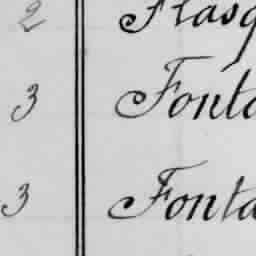 2 Flasq
3 Fonta
3 Fonta